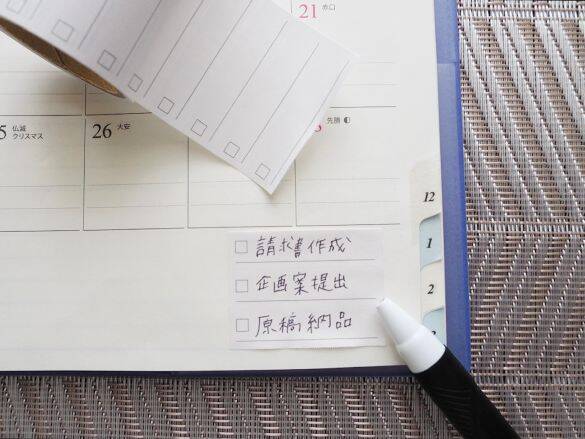 21 赤口
5 仏滅
クリスマス
26 大安
先勝
□ 請求書作成
□ 企画案提出
□ 原稿納品
12
1
2